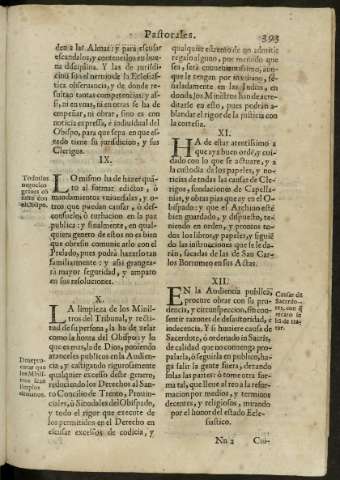 Pastorales. 393
den a las Almas: y para escusar
escandalos, y contenerlos en bue-
na disciplina. Y las de jurisdi-
cion son el nervio de la Eclesias-
tica observancia, y de donde re-
sultan tantas competencias: y as-
si, ni en unas, ni en otras se ha de
empeñar, ni obrar, sino es con
noticia expressa, è individual del
Obispo, para que sepa en que es-
tado tiene su jurisdicion, y sus
Clerigos.
IX.
Todos los
negocios
graves co
sulte con
el Obispo.
LO mismo ha de hazer quã-
to al formar edictos, ò
mandamientos universales, y o-
tros que puedan causar, ò des-
consuelo, ò turbacion en la paz
publica: y finalmente, en qual-
quiera genero de estos no es bien
que obre sin comunicarlo con el
Prelado, pues podrà hazerlo tan
familiarmente: y assi grangearà
mayor seguridad, y amparo
en sus resoluciones.
X.
LA limpieza de los Minis-
tros del Tribunal, y recti-
tud de su persona, la ha de zelar
como la honra del Obispo, y lo
que es mas, la de Dios, poniendo
aranceles publicos en la Audien-
cia, y castigando rigurosamente
qualquier excesso deste genero,
reduciendo los Derechos al San-
to Concilio de Trento, Provin-
ciales, ò Sinodales del Obispado,
y todo el rigor que execute de
los permitidos en el Derecho en
escusar excessos de codicia, y
curar que
los Minis-
tros sean
limpios
qualquier estremo de no admitir
regalo alguno, por menudo que
sea, serà convenientissimo, aun-
que le tengan por inviolable, se-
ñaladamente en las Indias, en
donde los Ministros han de acre-
ditarse en esto, pues podràn a-
blandar el rigor de la justicia con
la cortesia.
XI.
HA de estar atentissimo a
que aya buen orden, y cui-
dado con lo que se actuare, y a
la custodia de los papeles, y no-
ticias de todas las causas de Cle-
rigos, fundaciones de Capella-
nias, y obras pias que ay en el O-
bispado: y que el Archivo estè
bien guardado, y dispuesto, te-
niendo en orden, y prontos to-
dos los libros, y papeles, y siguiẽ-
do las instrucciones que se le da-
ràn, sacadas de las de San Car-
los Borromeo en sus Actas.
XII.
Causas de
Sacerdo-
tes, con q̃
recato se
hã de tra-
tar.
EN la Audiencia publica,
procure obrar con su pru-
dencia, y circunspeccion, sin con-
sentir razones de desautoridad, è
indecencia. Y si huviere causa de
Sacerdote, ò ordenado in Sacris,
de calidad que no convenga pro-
palarla, ò seguirla en publico, ha-
ga salir la gente fuera, dexando
solas las partes: ò tome otra for-
ma tal, que llene al reo a la refor-
macion por medios, y terminos
decentes, y religiosos, mirando
por el honor del estado Ecle-
siastico.
Nn 2 Cui-